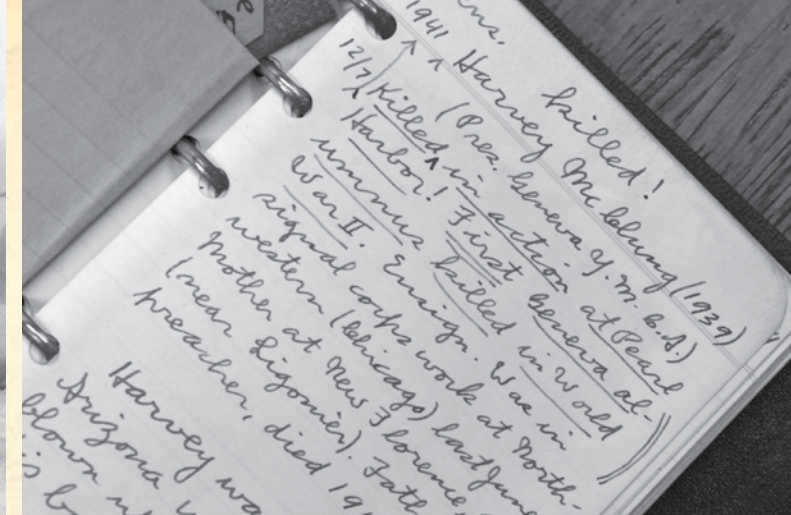 ens.
killed!
1941 Harvey McClung (1939)
(Pres. Geneva Y.M.C.A.)
12/7 Killed in action at Pearl
Harbor! First Geneva al-
umnus killed in World
War II. Ensign. Was in
signal corps work at North-
western (Chicago) last June
Mother at New Florence
(near Ligonier). Fath
preacher, died 19
Harvey wa
Arizona w
blown u
is b